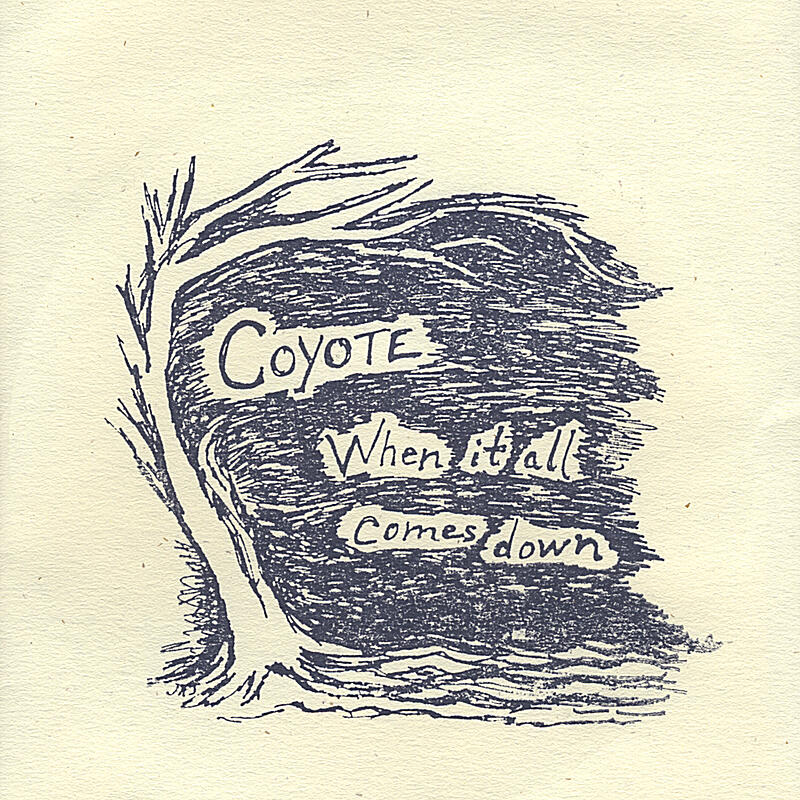 COYOTE
When it all
comes down